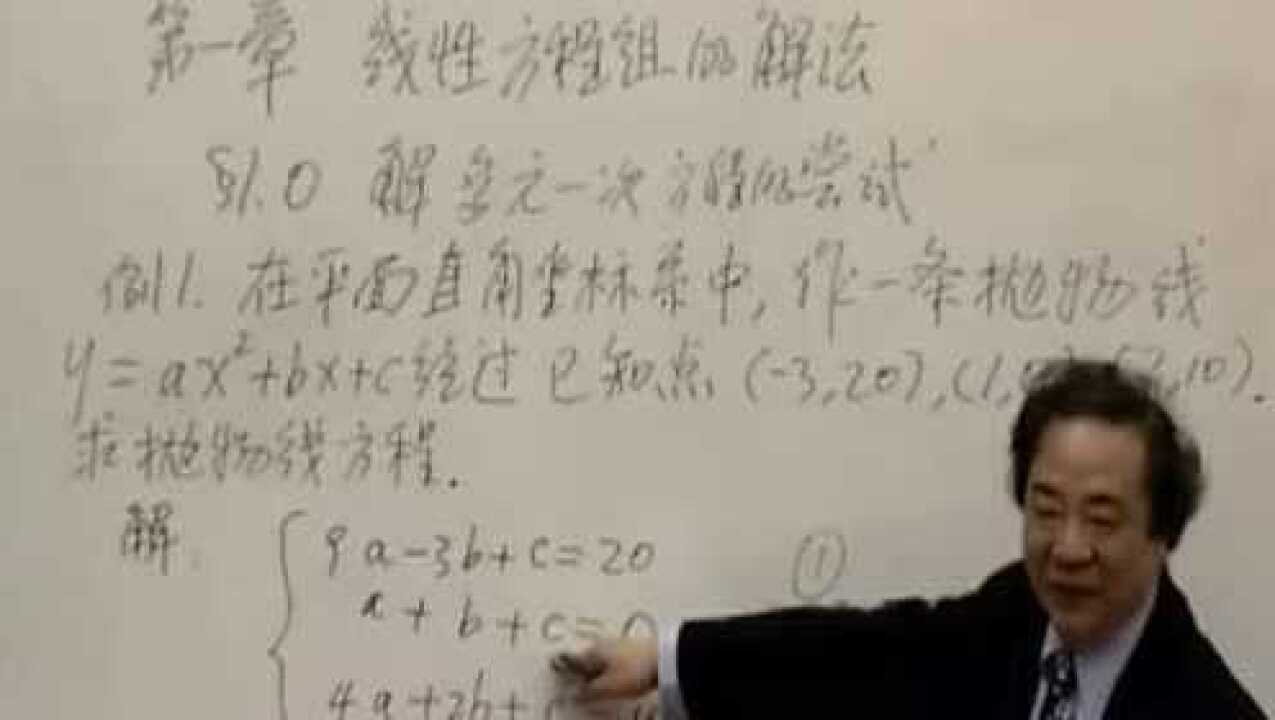 第一章 线性方程组的解法
§1.0 解多元一次方程的尝试
例1. 在平面直角坐标系中,作一条抛物线
y=ax²+bx+c经过已知点(-3,20),(1, ,10).
求抛物线方程.
解:
9a-3b+c=20 ①
a+b+c=0
4a+2b+